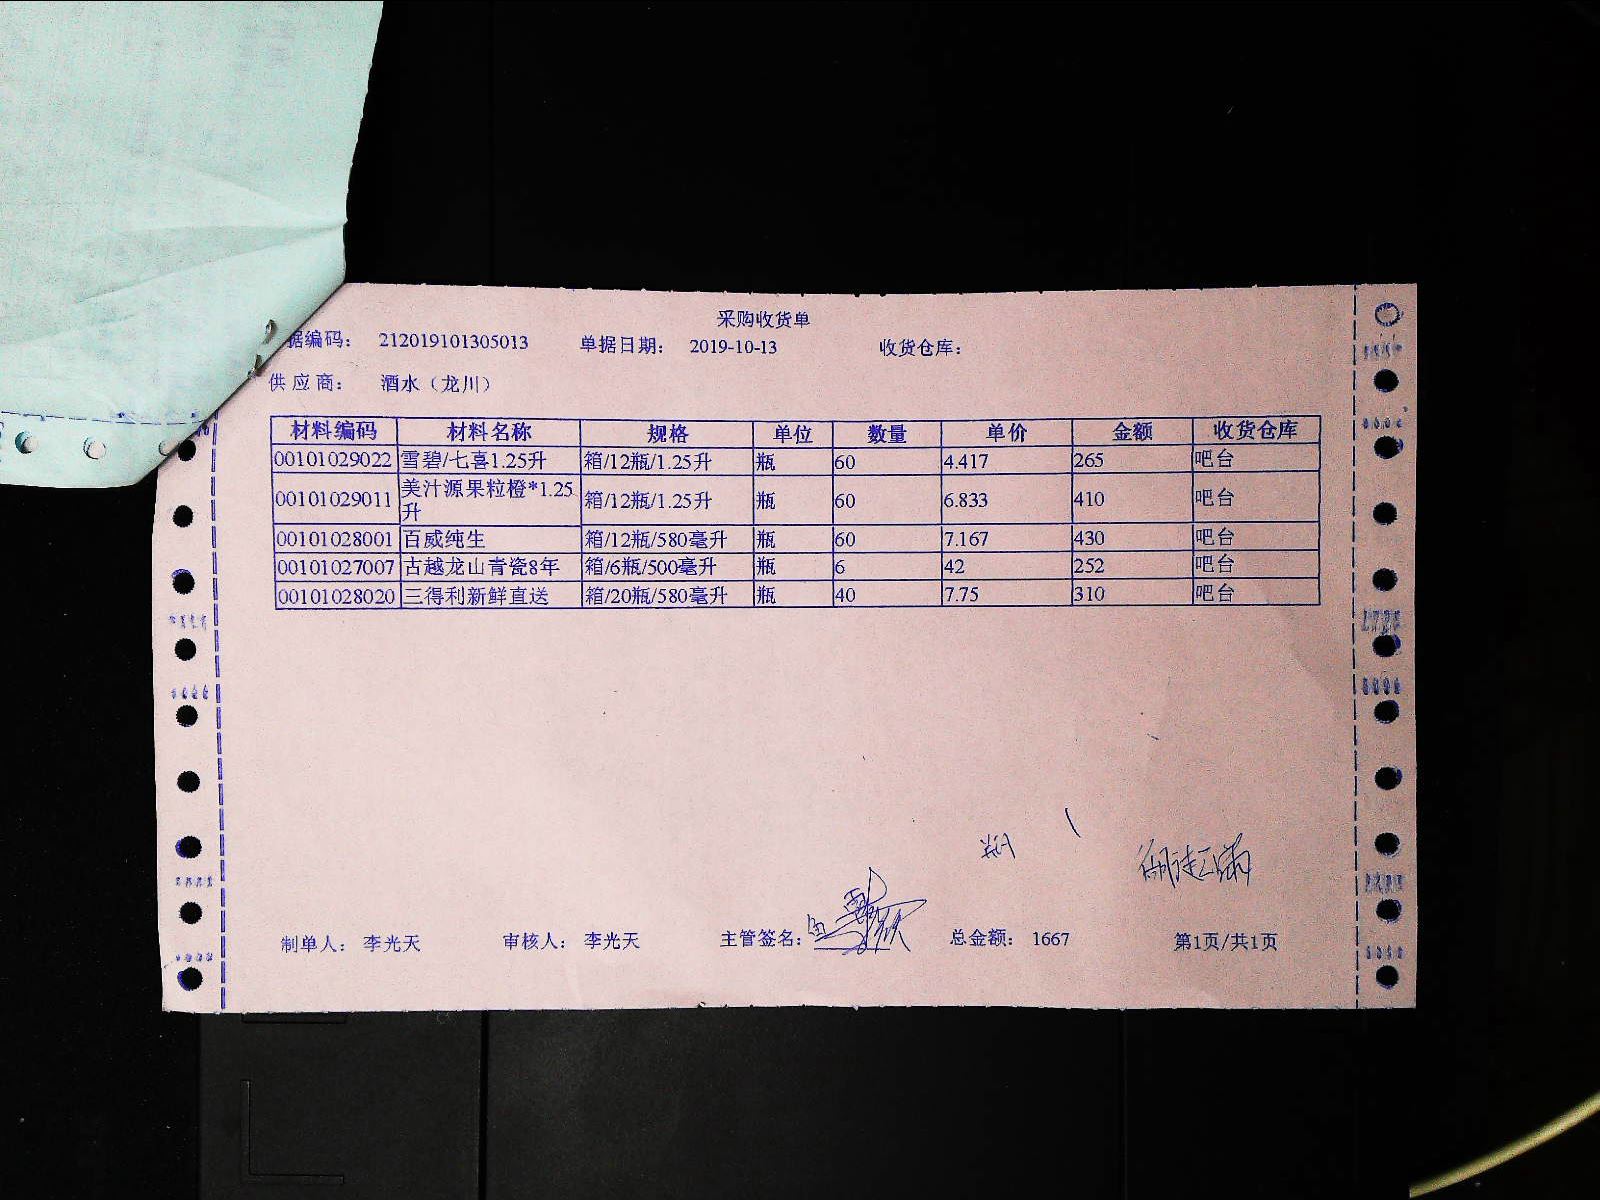 采购收货单
据编码： 212019101305013 单据日期： 2019-10-13 收货仓库：
供应商： 酒水（龙川）
材料编码 材料名称 规格 单位 数量 单价 金额 收货仓库
00101029022 雪碧/七喜1.25升 箱/12瓶/1.25升 瓶 60 4.417 265 吧台
00101029011 美汁源果粒橙*1.25升 箱/12瓶/1.25升 瓶 60 6.833 410 吧台
00101028001 百威纯生 箱/12瓶/580毫升 瓶 60 7.167 430 吧台
00101027007 古越龙山青瓷8年 箱/6瓶/500毫升 瓶 6 42 252 吧台
00101028020 三得利新鲜直送 箱/20瓶/580毫升 瓶 40 7.75 310 吧台
制单人： 李光天 审核人： 李光天 主管签名： 总金额： 1667 第1页/共1页